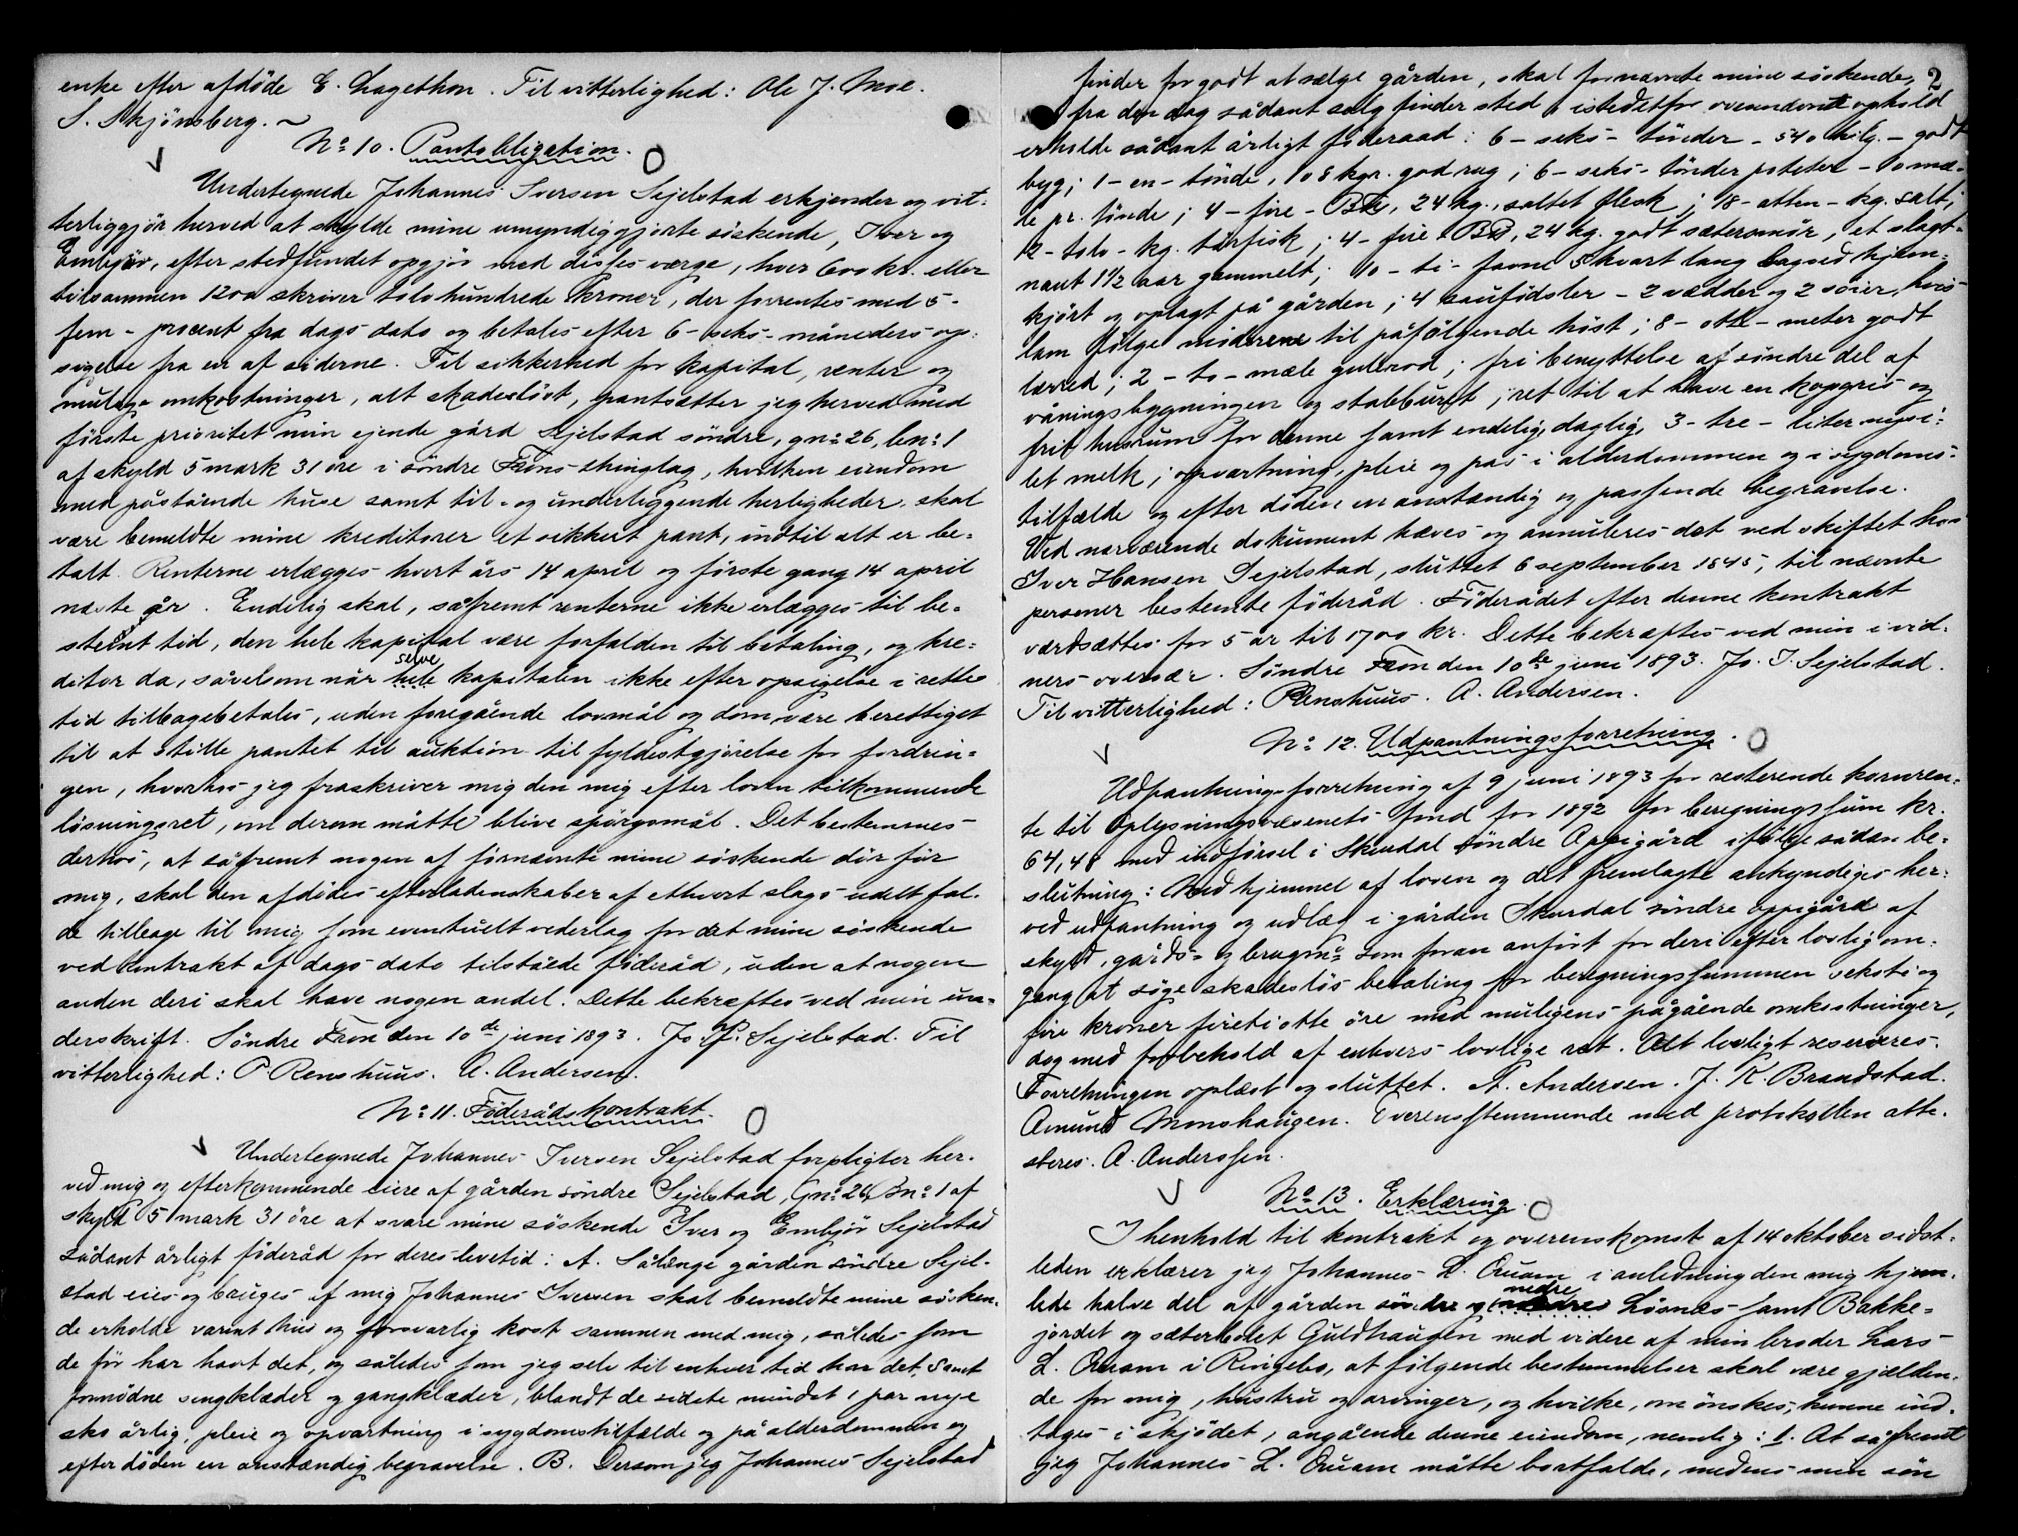 enke efter afdöde E. Lagethon. Til vitterlighed: Ole J. Moe.
S. Skjönsberg. ~
No 10. Pantobligation.
Undertegnede Johannes Iversen Sejelstad erkjender og vit-
terliggjör herved at skylde mine umyndiggjorte söskende, Iver og
Embjör, efter stedfundet opgjör med disses værge, hver 600 kr. eller
tilsammen 1200 skriver tolv hundrede kroner, der forrentes med 5-
fem - procent fra dags dato og betales efter 6 - seks - måneders op-
sigelse fra en af siderne. Til sikkerhed for kapital, renter og
mulige omkostninger, alt skadeslöst, pantsætter jeg herved med
förste prioritet min ejende gård Sejelstad söndre, gno 26, bno 1
af skyld 5 mark 31 öre i söndre Frons thinglag, hvilken eiendom
med påstående huse samt til- og underliggende herligheder skal
være bemeldte mine kreditorer et sikkert pant, indtil alt er be-
talt. Renterne erlægges hvert års 14 april og förste gang 14 april
næste år. Endelig skal, såfremt renterne ikke erlægges til be-
stemt tid, den hele kapital være forfalden til betaling, og kre-
ditor da, såvelsom når hele selve kapitalen ikke efter opsigelse i rette
tid tilbagebetales, uden foregående lovmål og dom være berettiget
til at stille pantet til auktion til fyldestgjörelse for fordrin-
gen, hvorhos jeg fraskriver mig den mig efter loven tilkommende
lösningsret, om derom måtte blive spörgsmål. Det bestemmes
derhos, at såfremt nogen af förnævnte mine söskende dör för
mig, skal den afdödes efterladenskaber af ethvert slags udelt fal-
de tilbage til mig som eventuelt vederlag for det mine söskende
ved kontrakt af dags dato tilståede föderåd, uden at nogen
anden deri skal have nogen andel. Dette bekræftes ved min un-
derskrift. Söndre Fron den 10de juni 1893. Jo. I. Sejelstad. Til
vitterlighed: P. Renshuus. A. Andersen.
No 11. Föderådskontrakt.
Undertegnede Johannes Iversen Sejelstad forpligter her-
ved mig og efterkommende eiere af gården söndre Sejelstad, Gno 26, Bno 1 af
skyld 5 mark 31 öre at svare mine söskende Iver og Embjör Sejelstad
sådant årligt föderåd for deres levetid: A. Sålænge gården söndre Sejel-
stad eies og bruges af mig Johannes Iversen skal bemeldte mine sösken-
de erholde varmt hus og forsvarlig kost sammen med mig, således som
de för har havt det, og således som jeg selv til enhver tid har det, samt
fornödne sengklæder og gangklæder, blandt de sidste mindst 1 par nye
sko årlig, pleie og opvartning i sygdomstilfælde og på alderdommen og
efter döden en anstændig begravelse. B. Dersom jeg Johannes Sejelstad
2
finder for godt at sælge gården, skal fornævnte mine söskende,
fra den dag sådant salg finder sted, istedetfor ovennævnte ophold
erholde sådant årligt föderaad: 6 - seks - tönder - 540 kilg. - godt
byg; 1 - en - tönde, 108 kgr. god rug; 6 - seks - tönder poteter - to mæ-
le pr. tönde; 4 - fire - BR, 24 kg., saltet flesk; 18 - atten - kg. salt;
12 - tolv - kg. törfisk; 4 - fire BR, 24 kg. godt sætersmör, et slagt-
naut 1½ aar gammelt; 10 - ti - favne 5 kvart lang bagved hjem-
kjört og oplagt på gården; 4 saufödsler - 2 vædder og 2 söier, hvis
lam fölge mödrene til påfölgende höst; 8 - otte - meter godt
lærred; 2 - to - mæle gulerod; fri benyttelse af söndre del af
våningsbygningen og stabburet; ret til at have en kopgris og
frit husrum for denne samt endelig daglig 3 - tre - liter nysi-
let melk; opvartning, pleie og pas i alderdommen og i sygdoms-
tilfælde og efter döden en anstændig og passende begravelse.
Ved nærværende dokument hæves og annuleres det ved skiftet hos
Iver Hansen Sejelstad, sluttet 6 september 1845, til nævnte
personer bestemte föderåd. Föderådet efter denne kontrakt
værdsættes for 5 år til 1700 kr. Dette bekræftes ved min i vid-
ners overvær. Söndre Fron den 10de juni 1893. Jo. I. Sejelstad.
Til vitterlighed: P. Renshuus. A. Andersen.
No 12. Udpantningsforretning.
Udpantningsforretning af 9 juni 1893 for resterende kornren-
te til Oplysningsvæsenets fond for 1892 for beregningssum kr.
64,48 med indförsel i Skurdal söndre Oppigård ifölge sådan be-
slutning: Med hjemmel af loven og det fremlagte ankyndiges her-
ved udpantning og udlæg i gården Skurdal söndre oppigård af
skyld, gårds- og brugsno som foran anfört for deri efter lovlig om-
gang at söge skadeslös betaling for beregningssummen seksti og
fire kroner firetiotte öre med muligens pågående omkostninger,
dog med forbehold af enhvers lovlige ret. Alt lovligt reserveres.
Forretningen oplæst og sluttet. A. Andersen. J. K. Brandstad.
Amund Monshaugen. Overensstemmende med protokollen atte-
steres. A. Anderssen.
No 13. Erklæring.
I henhold til kontrakt og overenskomst af 14 oktober sidst-
leden erklærer jeg Johannes L. Quam i anledning den mig hjem-
lede halve del af gården söndre og nedre Lösnes samt Bakke-
jordet og sæterbolet Guldhaugen med videre af min broder Lars
L. Quam i Ringebo, at fölgende bestemmelser skal være gjælden-
de for mig, hustru og arvinger, og hvilke, om önskes, kunne ind-
tages i skjödet, angående denne eiendom, nemlig: 1. At såfremt
jeg Johannes L. Quam måtte bortfalde, medens min sön